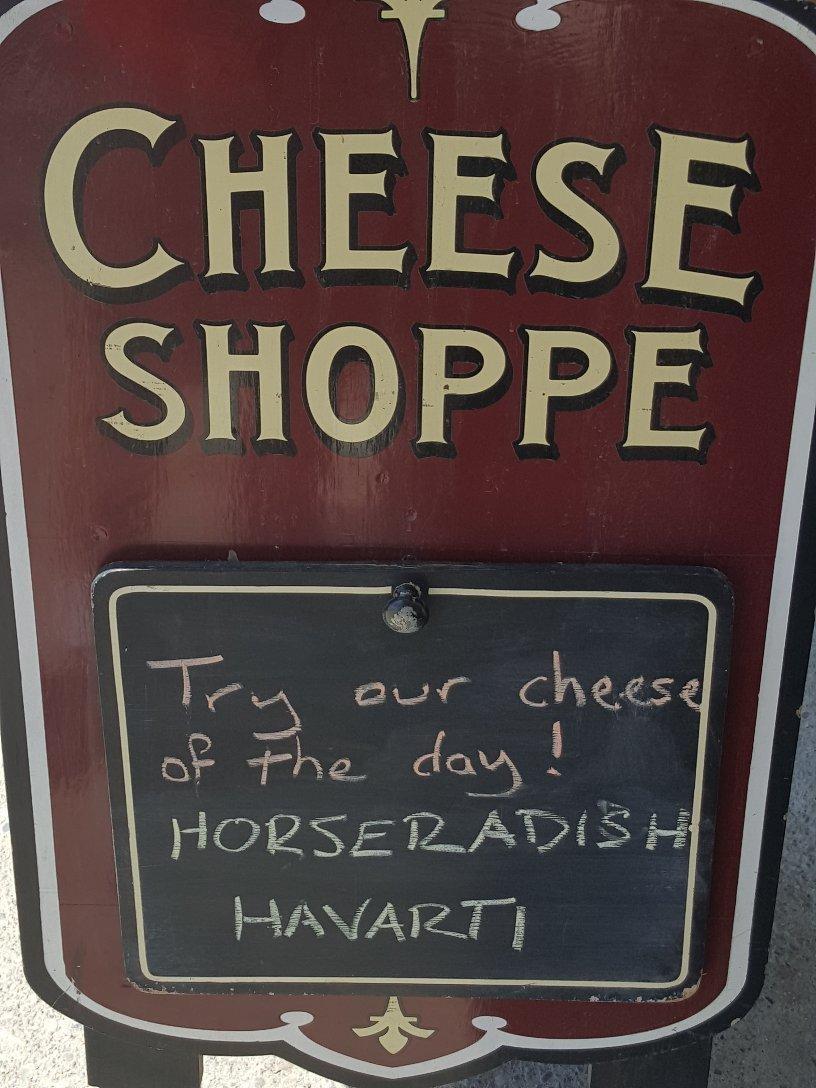 CHEESE
SHOPPE
Try our cheese
of the day!
HORSERADISH
HAVARTI